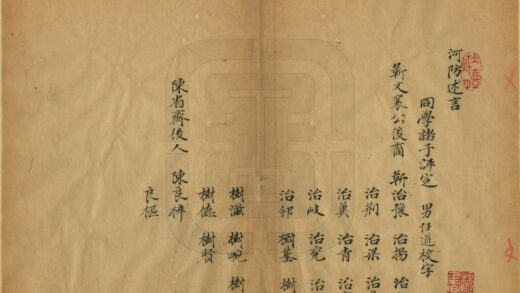 河防述言
同學諸子評定 男任道校字
靳文襄公後裔 靳治豫 治揚 治
治荆 治梁
治冀 治青 治
治岐 治兖 治
治邠 樹基 樹
樹滋 樹畹 樹
樹德 樹賢
陳省齋後人 陳良
良樞